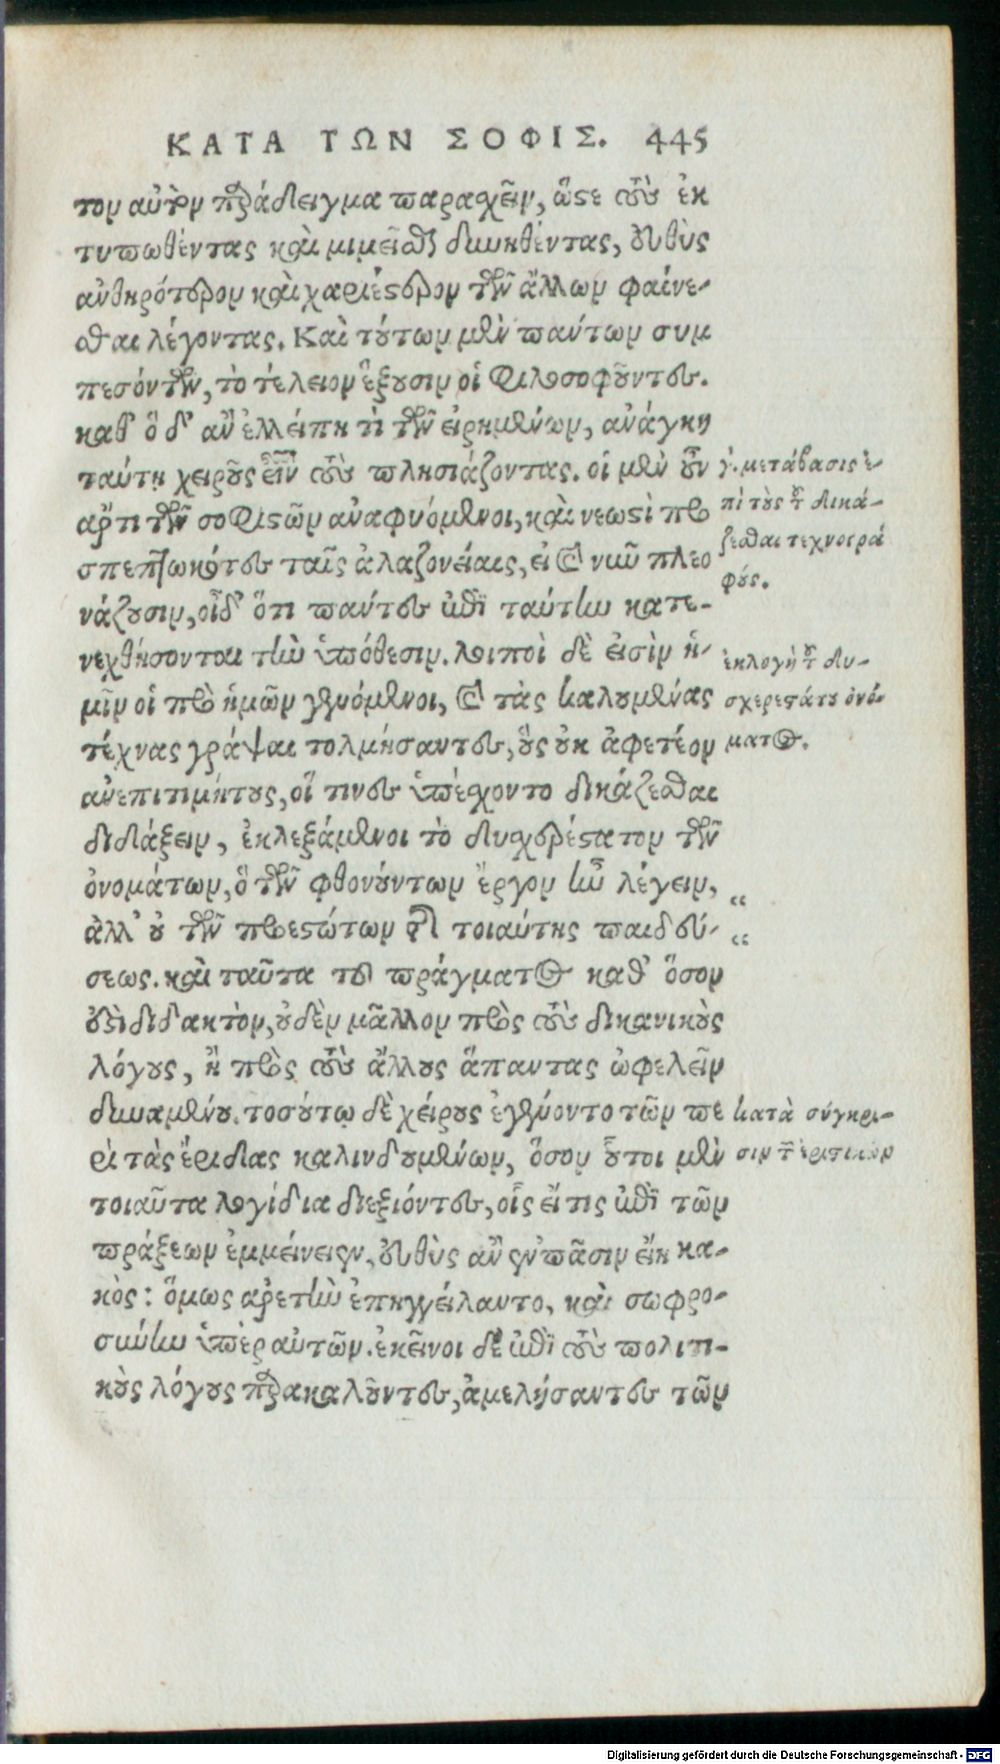 ΚΑΤΑ ΤΩΝ ΣΟΦΙΣ. 445
τον αὐτὸν παράδειγμα παρασχεῖν, ὥστε τοὺς ἐκ
τυπωθέντας καὶ μιμεῖσθαι δυνηθέντας, εὐθὺς
ἀνθηρότερον καὶ χαριέστερον τῶν ἄλλων φαίνε-
σθαι λέγοντας. Καὶ τούτων μὲν πάντων συμ
πεσόντων, τὸ τέλειον ἕξουσιν οἱ φιλοσοφοῦντες.
καθ' ὃ δ' ἂν ἐλλείπῃ τὶ τῶν εἰρημένων, ἀνάγκη
ταύτῃ χείρους εἶναι τοὺς πλησιάζοντας. οἱ μὲν οὖν
ἄρτι τῶν σοφιστῶν ἀναφυόμενοι, καὶ νεωστὶ προ
σπεπτωκότες ταῖς ἀλαζονείαις, εἰ καὶ νῦν πλεο
νάζουσιν, οἶδ' ὅτι πάντες ἐπὶ ταύτην κατε-
νεχθήσονται τὴν ὑπόθεσιν. λοιποὶ δὲ εἰσὶν ἡ-
μῖν οἱ πρὸ ἡμῶν γενόμενοι, καὶ τὰς καλουμένας
τέχνας γράψαι τολμήσαντες, οὓς οὐκ ἀφετέον
ἀνεπιτιμήτους, οἵ τινες ὑπέσχοντο δικάζεσθαι
διδάξειν, ἐκλεξάμενοι τὸ δυσχερέστατον τῶν
ὀνομάτων, ὃ τῶν φθονούντων ἔργον ἦν λέγειν,
ἀλλ' οὐ τῶν προεστώτων τῆς τοιαύτης παιδεύ-
σεως. καὶ ταῦτα τοῦ πράγματος καθ' ὅσον
ἐστὶ διδακτὸν, οὐδὲν μᾶλλον πρὸς τοὺς δικανικοὺς
λόγους, ἢ πρὸς τοὺς ἄλλους ἅπαντας ὠφελεῖν
δυναμένου. τοσούτῳ δὲ χείρους ἐγένοντο τῶν πε
ρὶ τὰς ἔριδας καλινδουμένων, ὅσον οὗτοι μὲν
τοιαῦτα λογίδια διεξιόντες, οἷς εἴ τις ἐπὶ τῶν
πράξεων ἐμμείνειεν, εὐθὺς ἂν ἐν πᾶσιν εἴη κα-
κὸς: ὅμως ἀρετὴν ἐπηγγείλαντο, καὶ σωφρο-
σύνην ὑπὲρ αὐτῶν. ἐκεῖνοι δὲ ἐπὶ τοὺς πολιτι-
κοὺς λόγους παρακαλοῦντες, ἀμελήσαντες τῶν
γ. μετάβασις ἐ-
πὶ τοὺς τοῦ δικά-
ζεσθαι τεχνογρά
φους.
ἐκλογὴ τοῦ δυ-
σχερεστάτου ὀνό-
ματος.
“
“
κατὰ σύγκρι-
σιν τῶν ἐριστικῶν
Digitalisierung gefördert durch die Deutsche Forschungsgemeinschaft - DFG